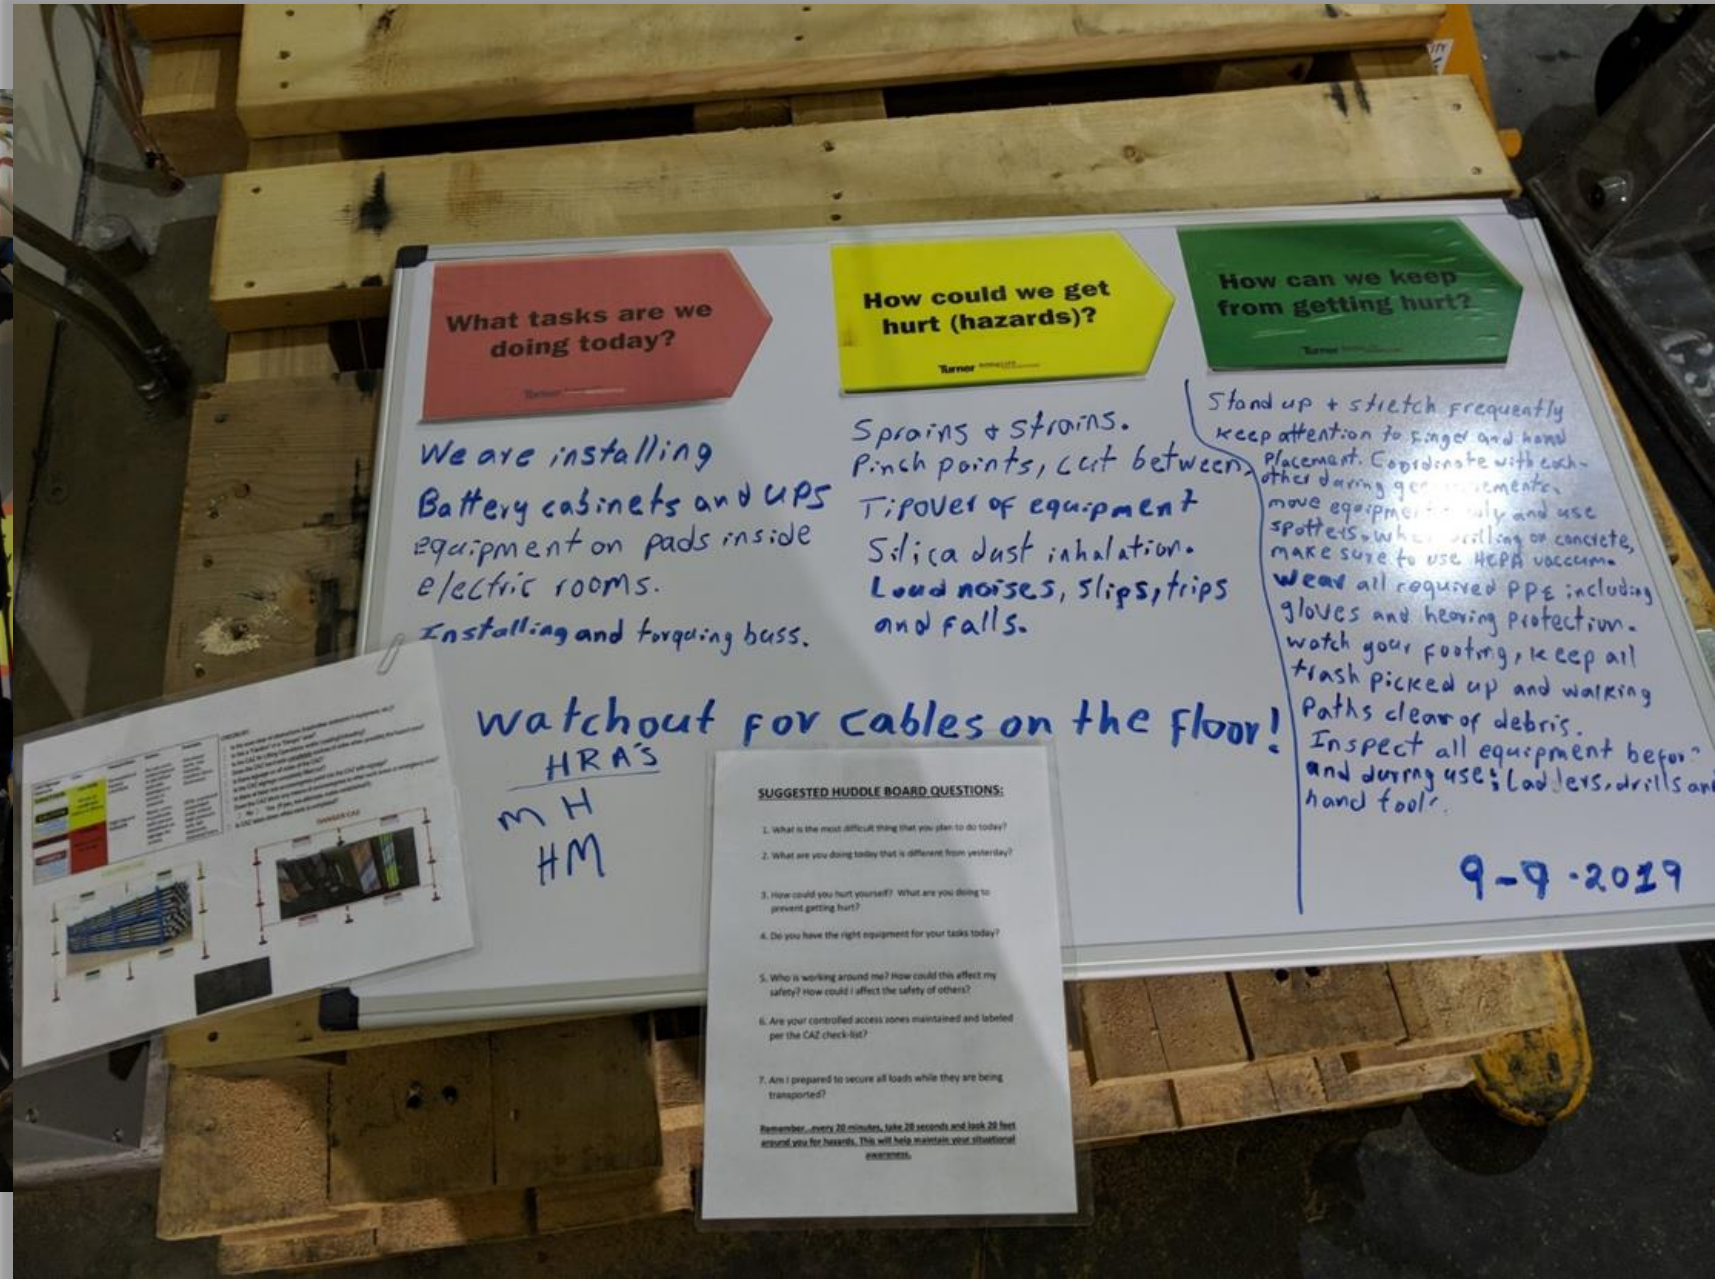 What tasks are we
doing today?
Turner
We are installing
Battery cabinets and UPS
equipment on pads inside
electric rooms.
Installing and torquing buss.
How could we get
hurt (hazards)?
Turner
Sprains & strains.
Pinch points, cut between,
Tipover of equipment
Silica dust inhalation.
Loud noises, slips, trips
and falls.
How can we keep
from getting hurt?
Turner
Stand up + stretch frequently
keep attention to finger and hand
placement. Coordinate with each-
other during
move and use
spotters. drilling on concrete,
make sure to use HEPA vaccum.
Wear all required PPE including
gloves and hearing protection.
watch your footing, keep all
trash picked up and walking
paths clear of debris.
Inspect all equipment before
and during use: Ladders, drills and
hand tools.
9-9-2019
Watchout for cables on the floor!
HRA'S
MH
HM
SUGGESTED HUDDLE BOARD QUESTIONS:
1. What is the most difficult thing that you plan to do today?
2. What are you doing today that is different from yesterday?
3. How could you hurt yourself? What are you doing to
prevent getting hurt?
4. Do you have the right equipment for your tasks today?
5. Who is working around me? How could this affect my
safety? How could I affect the safety of others?
6. Are your controlled access zones maintained and labeled
per the CAZ check-list?
7. Am I prepared to secure all loads while they are being
transported?
Remember...every 20 minutes, take 20 seconds and look 20 feet
around you for hazards. This will help maintain your situational
awareness.
DANGER CAZ